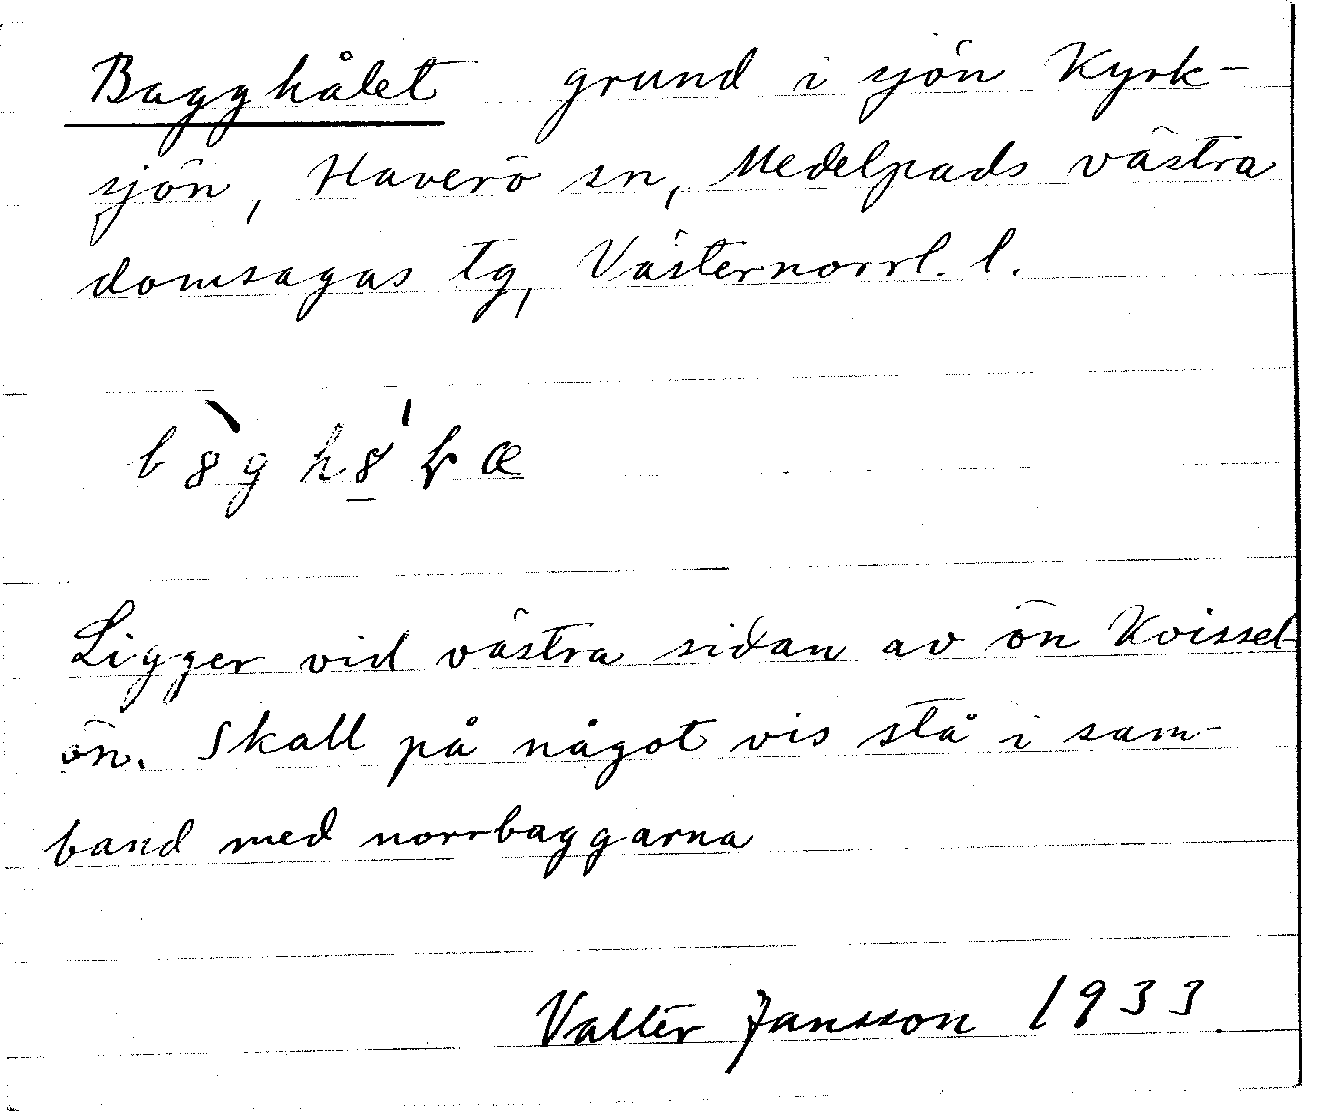 Bagghålet grund i sjön Kyrk-
sjön, Haverö sn, Medelpads västra
domsagas tg, Västernorrl. l.
Ligger vid västra sidan av ön Kvissel-
ön. Skall på något vis stå i sam-
band med norrbaggarna
Valter Jansson 1933.